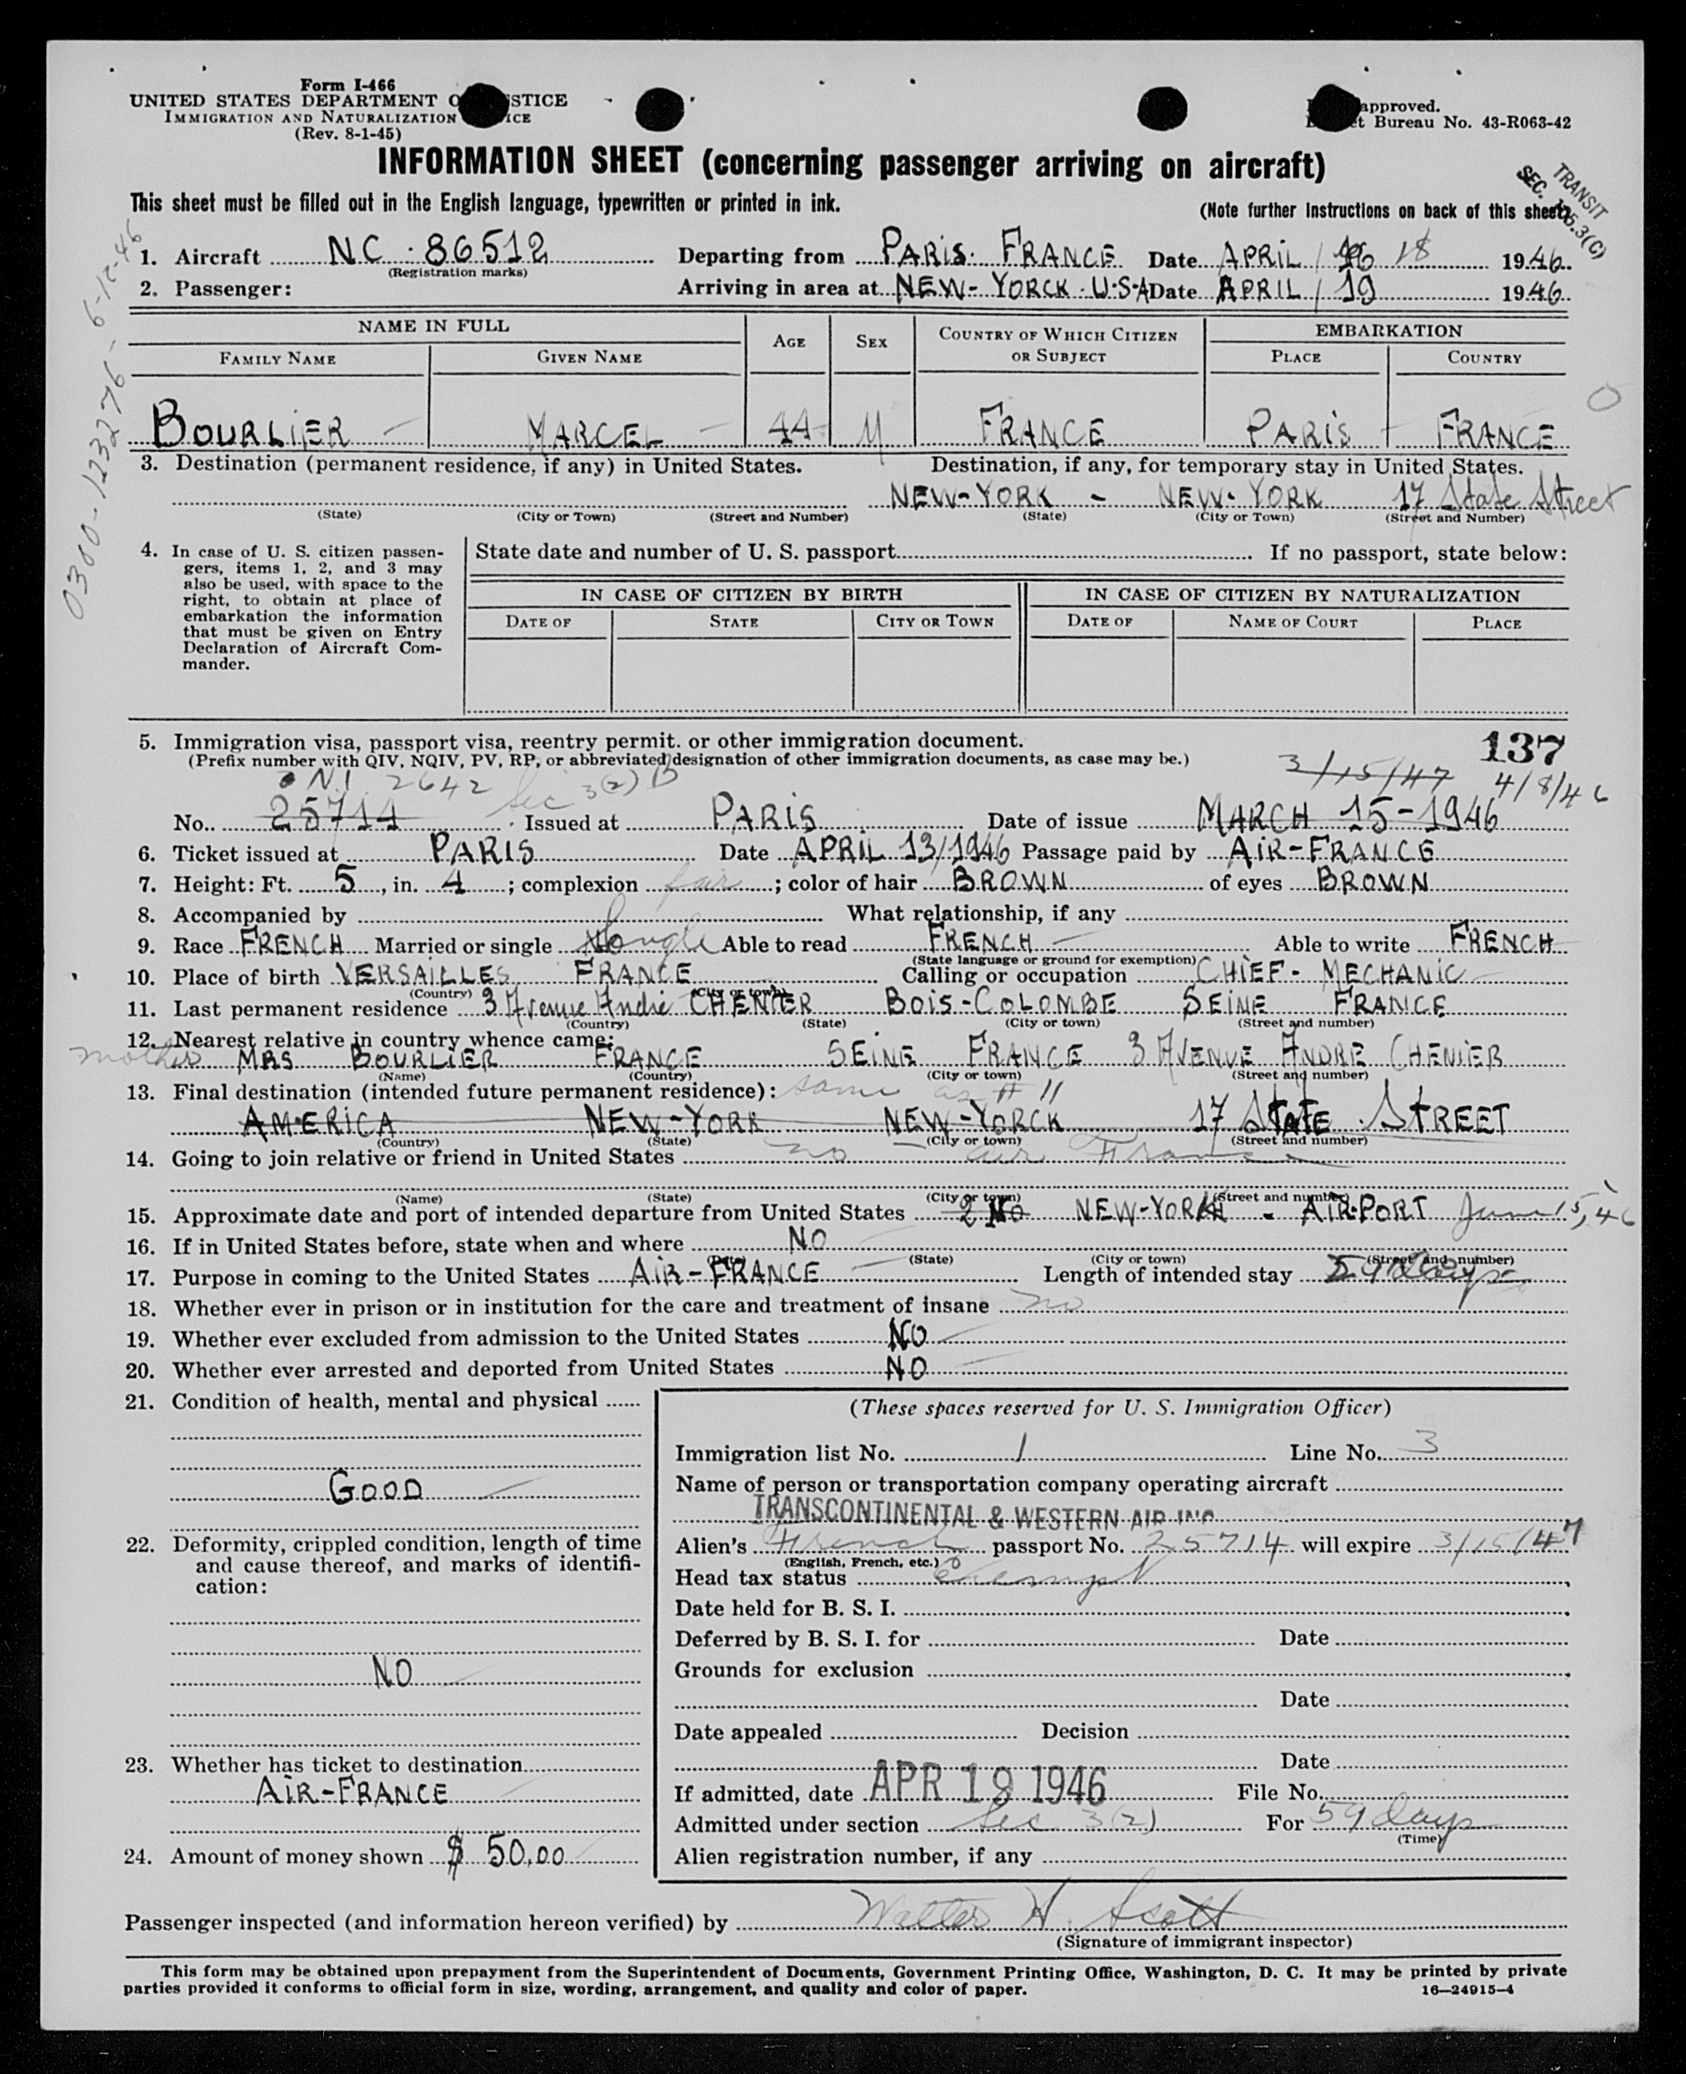 Form I-466
UNITED STATES DEPARTMENT O STICE
IMMIGRATION AND NATURALIZATION ICE
(Rev. 8-1-45)
approved.
t Bureau No. 43-R063-42
INFORMATION SHEET (concerning passenger arriving on aircraft)
TRANSIT
SEC. 175.3(C)
This sheet must be filled out in the English language, typewritten or printed in ink.
(Note further instructions on back of this sheet)
0300-123276-6-12-46
1. Aircraft NC. 86512 Departing from PARIS. FRANCE Date APRIL / 18 1946
(Registration marks)
2. Passenger: Arriving in area at NEW-YORCK.U.S.A Date APRIL / 19 1946
NAME IN FULL AGE SEX COUNTRY OF WHICH CITIZEN OR SUBJECT EMBARKATION
FAMILY NAME GIVEN NAME PLACE COUNTRY
BOURLIER MARCEL 44 M FRANCE PARIS FRANCE
3. Destination (permanent residence, if any) in United States. Destination, if any, for temporary stay in United States.
NEW-YORK - NEW-YORK 17 State Street
(State) (City or Town) (Street and Number) (State) (City or Town) (Street and Number)
4. In case of U. S. citizen passen-
gers, items 1, 2, and 3 may
also be used, with space to the
right, to obtain at place of
embarkation the information
that must be given on Entry
Declaration of Aircraft Com-
mander.
State date and number of U. S. passport If no passport, state below:
IN CASE OF CITIZEN BY BIRTH IN CASE OF CITIZEN BY NATURALIZATION
DATE OF STATE CITY OR TOWN DATE OF NAME OF COURT PLACE
5. Immigration visa, passport visa, reentry permit. or other immigration document. 137
(Prefix number with QIV, NQIV, PV, RP, or abbreviated designation of other immigration documents, as case may be.)
N.I. 2642 Sec 3(2) B 3/15/47 4/8/46
No. 25714 Issued at PARIS Date of issue MARCH 15-1946
6. Ticket issued at PARIS Date APRIL 13/1946 Passage paid by AIR-FRANCE
7. Height: Ft. 5, in. 4; complexion fair; color of hair BROWN of eyes BROWN
8. Accompanied by What relationship, if any
9. Race FRENCH Married or single Single Able to read FRENCH Able to write FRENCH
(State language or ground for exemption)
10. Place of birth VERSAILLES FRANCE Calling or occupation CHIEF-MECHANIC
(Country) (City or town)
11. Last permanent residence 3 Avenue André CHENIER BOIS-COLOMBE SEINE FRANCE
(Country) (State) (City or town) (Street and number)
12. Nearest relative in country whence came:
mother MRS BOURLIER FRANCE SEINE FRANCE 3 AVENUE ANDRE CHENIER
(Name) (Country) (City or town) (Street and number)
13. Final destination (intended future permanent residence): same as # 11
AMERICA NEW-YORK NEW-YORCK 17 STATE STREET
(Country) (State) (City or town) (Street and number)
14. Going to join relative or friend in United States no air France
(Name) (State) (City or town) (Street and number)
15. Approximate date and port of intended departure from United States NEW-YORK - AIR-PORT June 15, 46
16. If in United States before, state when and where NO
(State) (City or town) (Street and number)
17. Purpose in coming to the United States AIR-FRANCE Length of intended stay 59 days
18. Whether ever in prison or in institution for the care and treatment of insane no
19. Whether ever excluded from admission to the United States NO
20. Whether ever arrested and deported from United States NO
21. Condition of health, mental and physical
GOOD
22. Deformity, crippled condition, length of time
and cause thereof, and marks of identifi-
cation:
NO
23. Whether has ticket to destination
AIR-FRANCE
24. Amount of money shown $ 50,00
(These spaces reserved for U. S. Immigration Officer)
Immigration list No. 1 Line No. 3
Name of person or transportation company operating aircraft
TRANSCONTINENTAL & WESTERN AIR INC
Alien's French passport No. 25714 will expire 3/15/47
(English, French, etc.)
Head tax status exempt
Date held for B. S. I.
Deferred by B. S. I. for Date
Grounds for exclusion
Date
Date appealed Decision
Date
If admitted, date APR 19 1946 File No.
Admitted under section Sec 3(2) For 59 days
(Time)
Alien registration number, if any
Passenger inspected (and information hereon verified) by Walter H. Scott
(Signature of immigrant inspector)
This form may be obtained upon prepayment from the Superintendent of Documents, Government Printing Office, Washington, D. C. It may be printed by private
parties provided it conforms to official form in size, wording, arrangement, and quality and color of paper. 16—24915-4